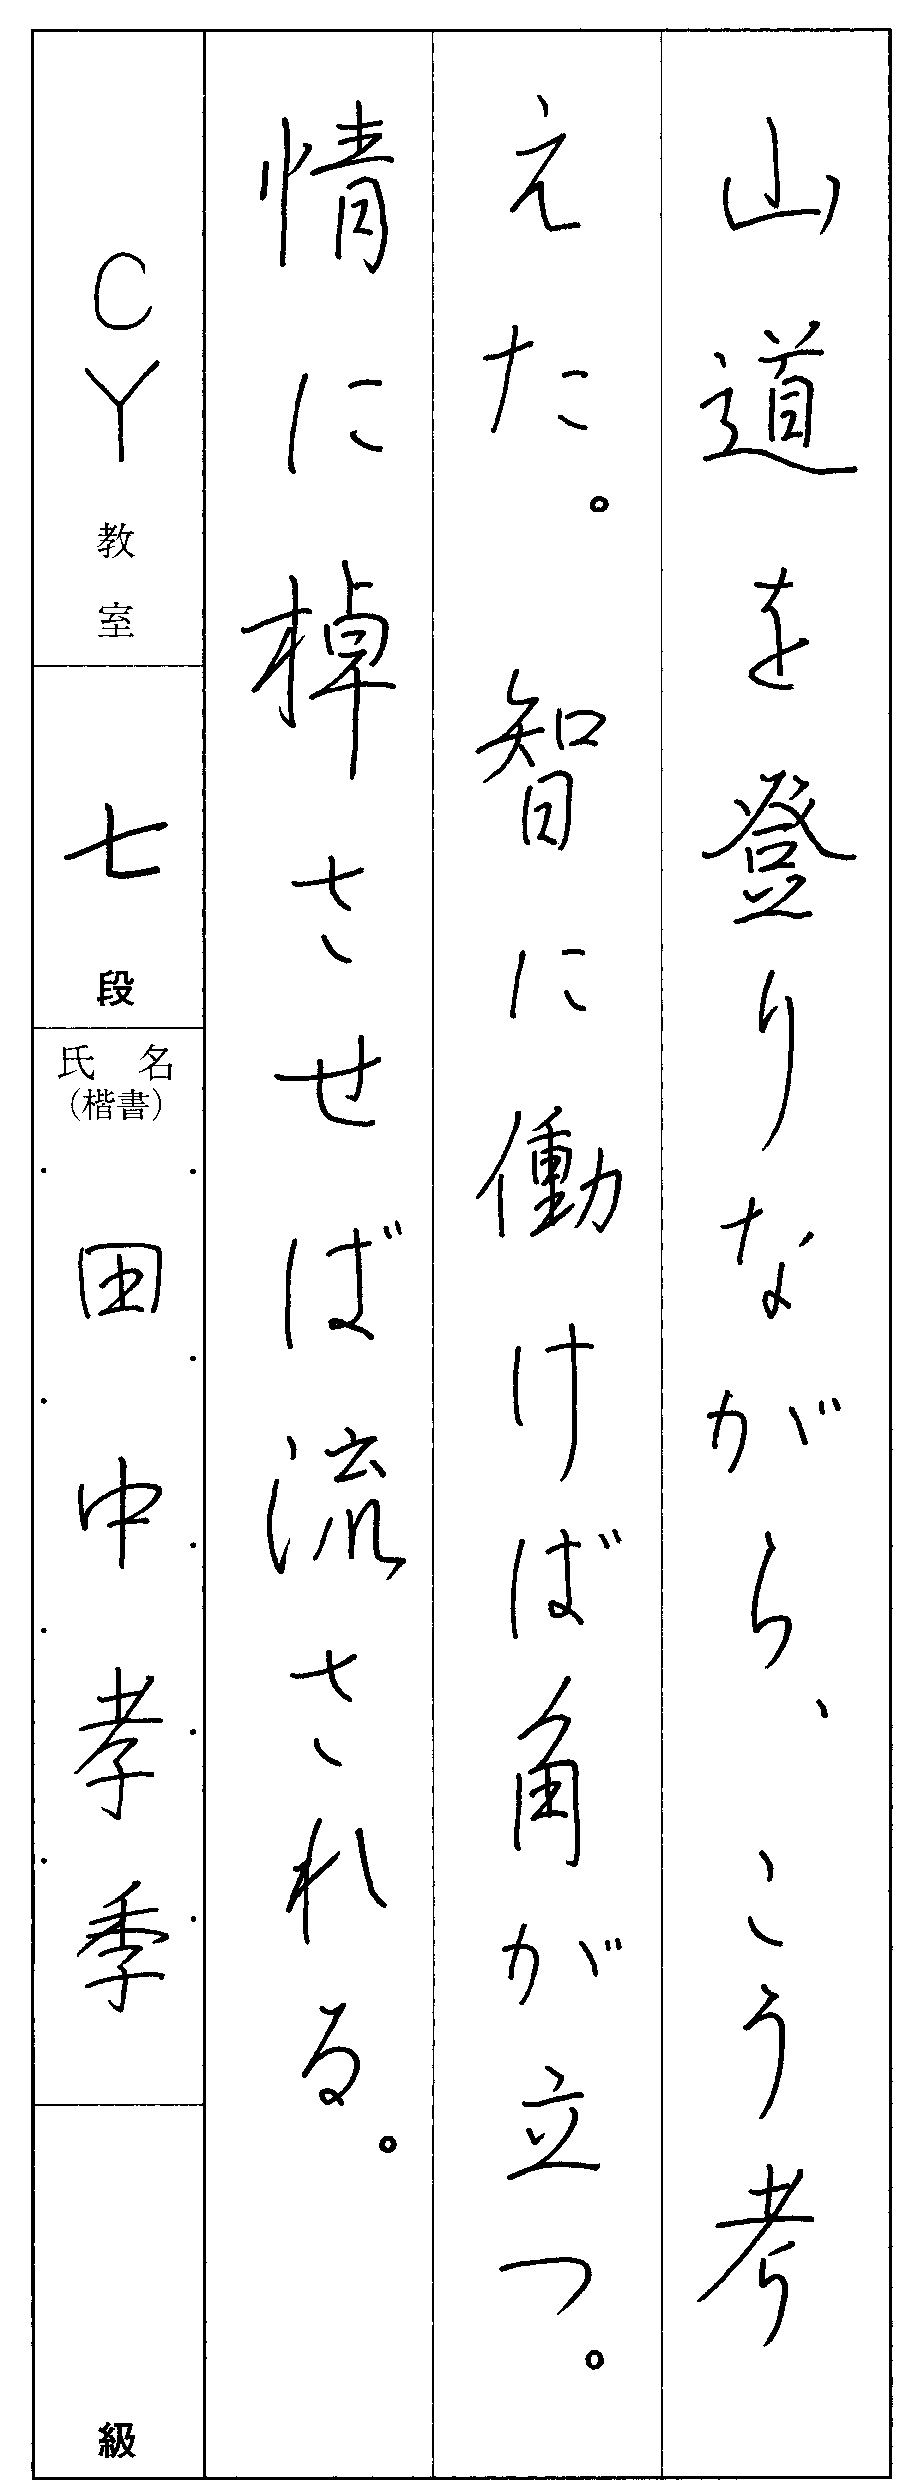 山道を登りながら、こう考
えた。智に働けば角が立つ。
情に棹させば流される。
CY教室
七段
氏名
（楷書）
田中孝季
級